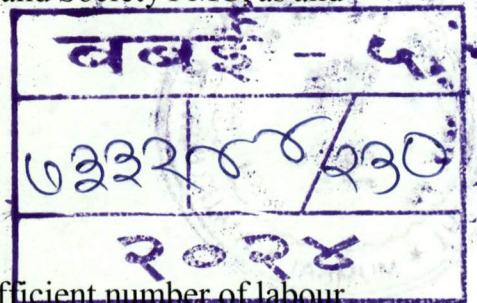 and Society as and
बबई - ५
७३३२ ४४/२३०
२०२४
fficient number of labour